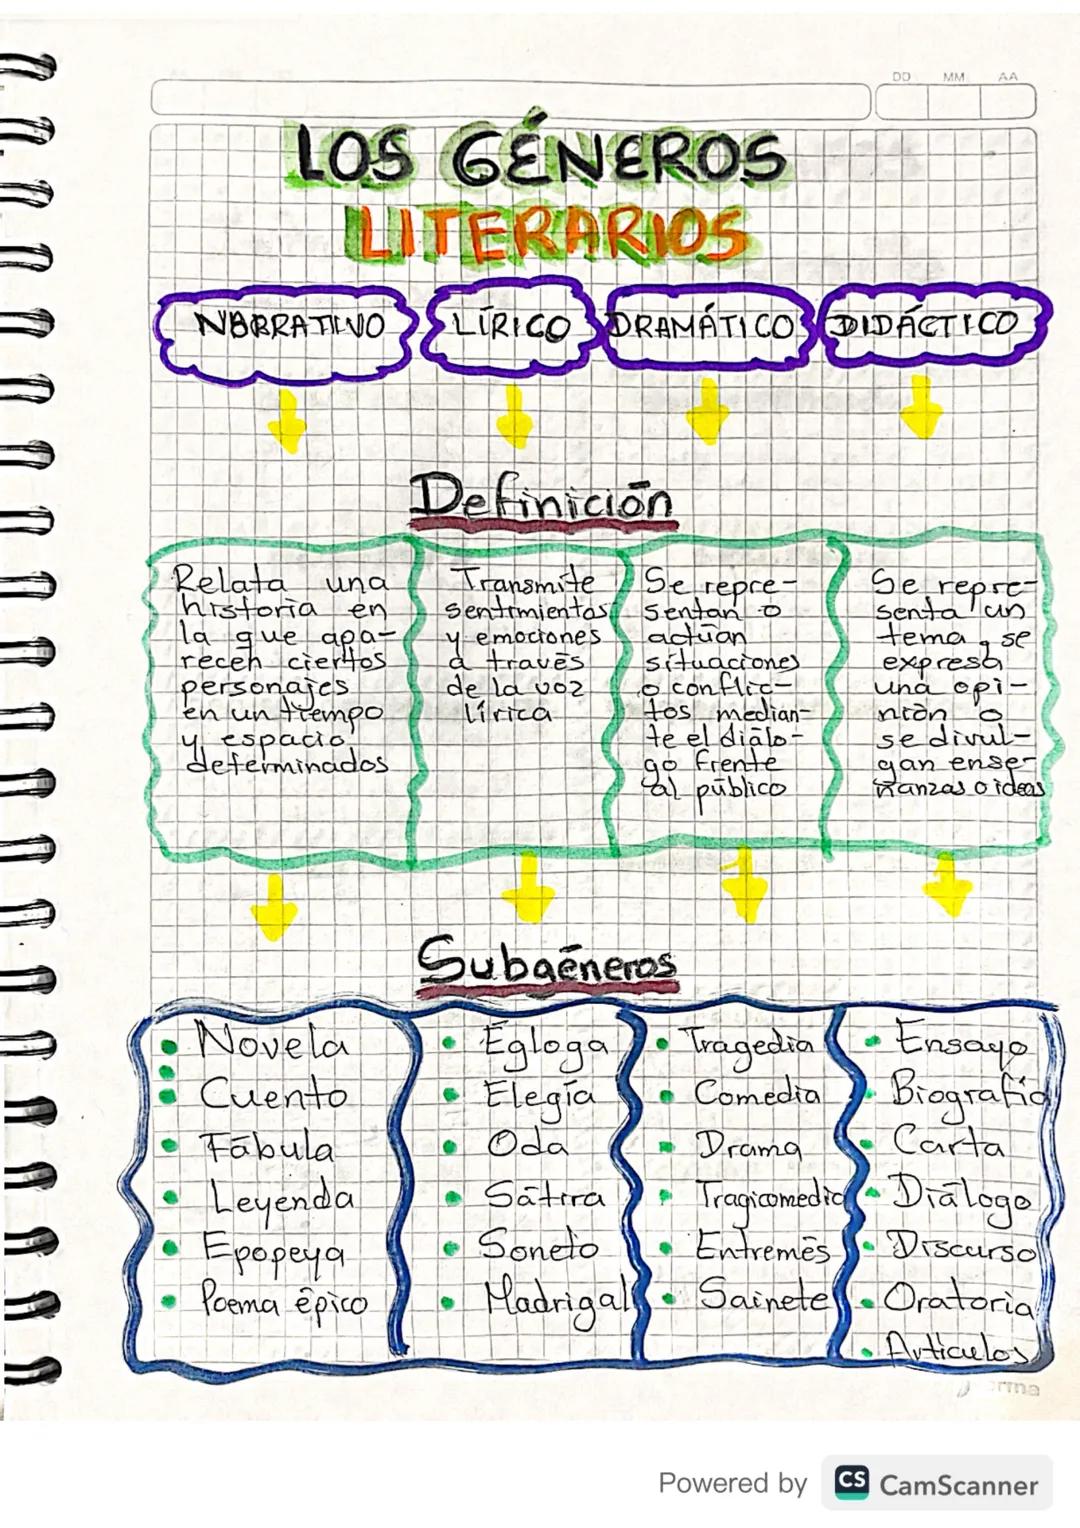 DD MM AA
LOS GÉNEROS
LITERARIOS
NARRATIVO
LÍRICO
DRAMÁTICO
DIDÁCTICO
Definición
Relata una
historia en
la que apa-
recen ciertos
personajes
en un tiempo
y espacio
determinados
Transmite
sentimientos
y emociones
a través
de la voz
lírica
Se repre-
sentan o
actúan
situaciones
o conflic-
tos median-
te el diálo-
go frente
al público
Se repre-
senta un
tema, se
expresa
una opi-
nión o
se divul-
gan ense-
ñanzas o ideas
Subgéneros
• Novela
• Cuento
• Fábula
• Leyenda
• Epopeya
• Poema épico
• Égloga
• Elegía
• Oda
• Sátira
• Soneto
• Madrigal
• Tragedia
• Comedia
• Drama
• Tragicomedia
• Entremés
• Sainete
• Ensayo
• Biografía
• Carta
• Diálogo
• Discurso
• Oratoria
• Artículos
Powered by CS CamScanner